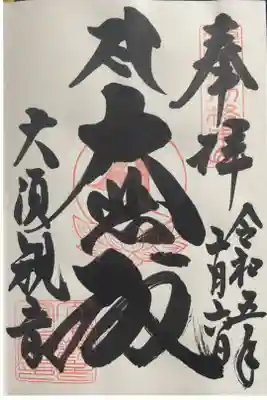 奉拝
令和五年
二月六日
大悲殿
大須観音